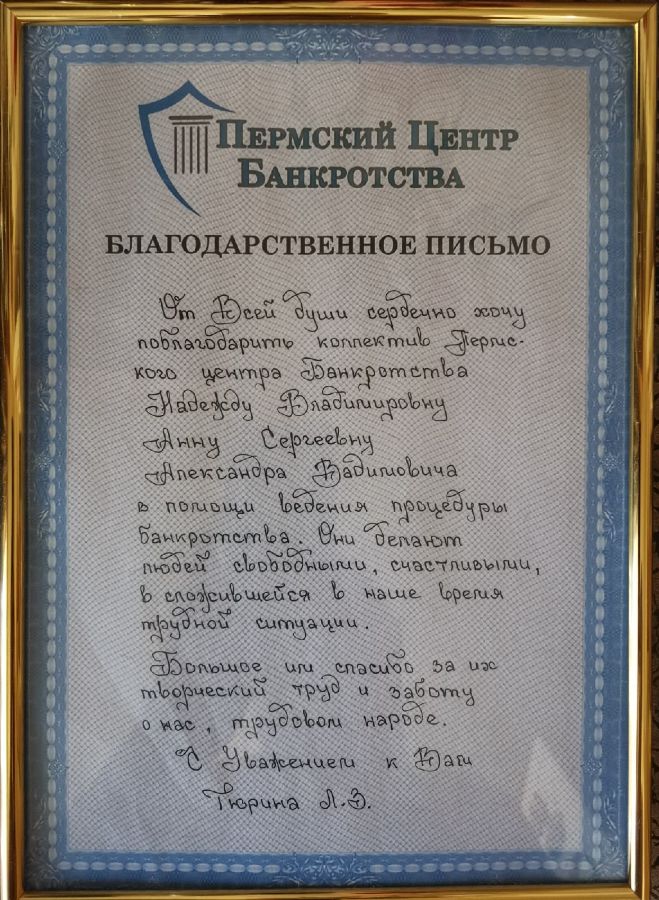 Пермский Центр
Банкротства
БЛАГОДАРСТВЕННОЕ ПИСЬМО
От Всей души сердечно хочу
поблагодарить коллектив Пермс-
кого центра Банкротства
Надежду Владимировну
Анну Сергеевну
Александра Вадимовича
в помощи ведения процедуры
банкротства. Они делают
людей свободными, счастливыми,
в сложившейся в наше время
трудной ситуации.
Большое им спасибо за их
творческий труд и заботу
о нас, трудовом народе.
С Уважением к Вам
Тюрина Л.З.